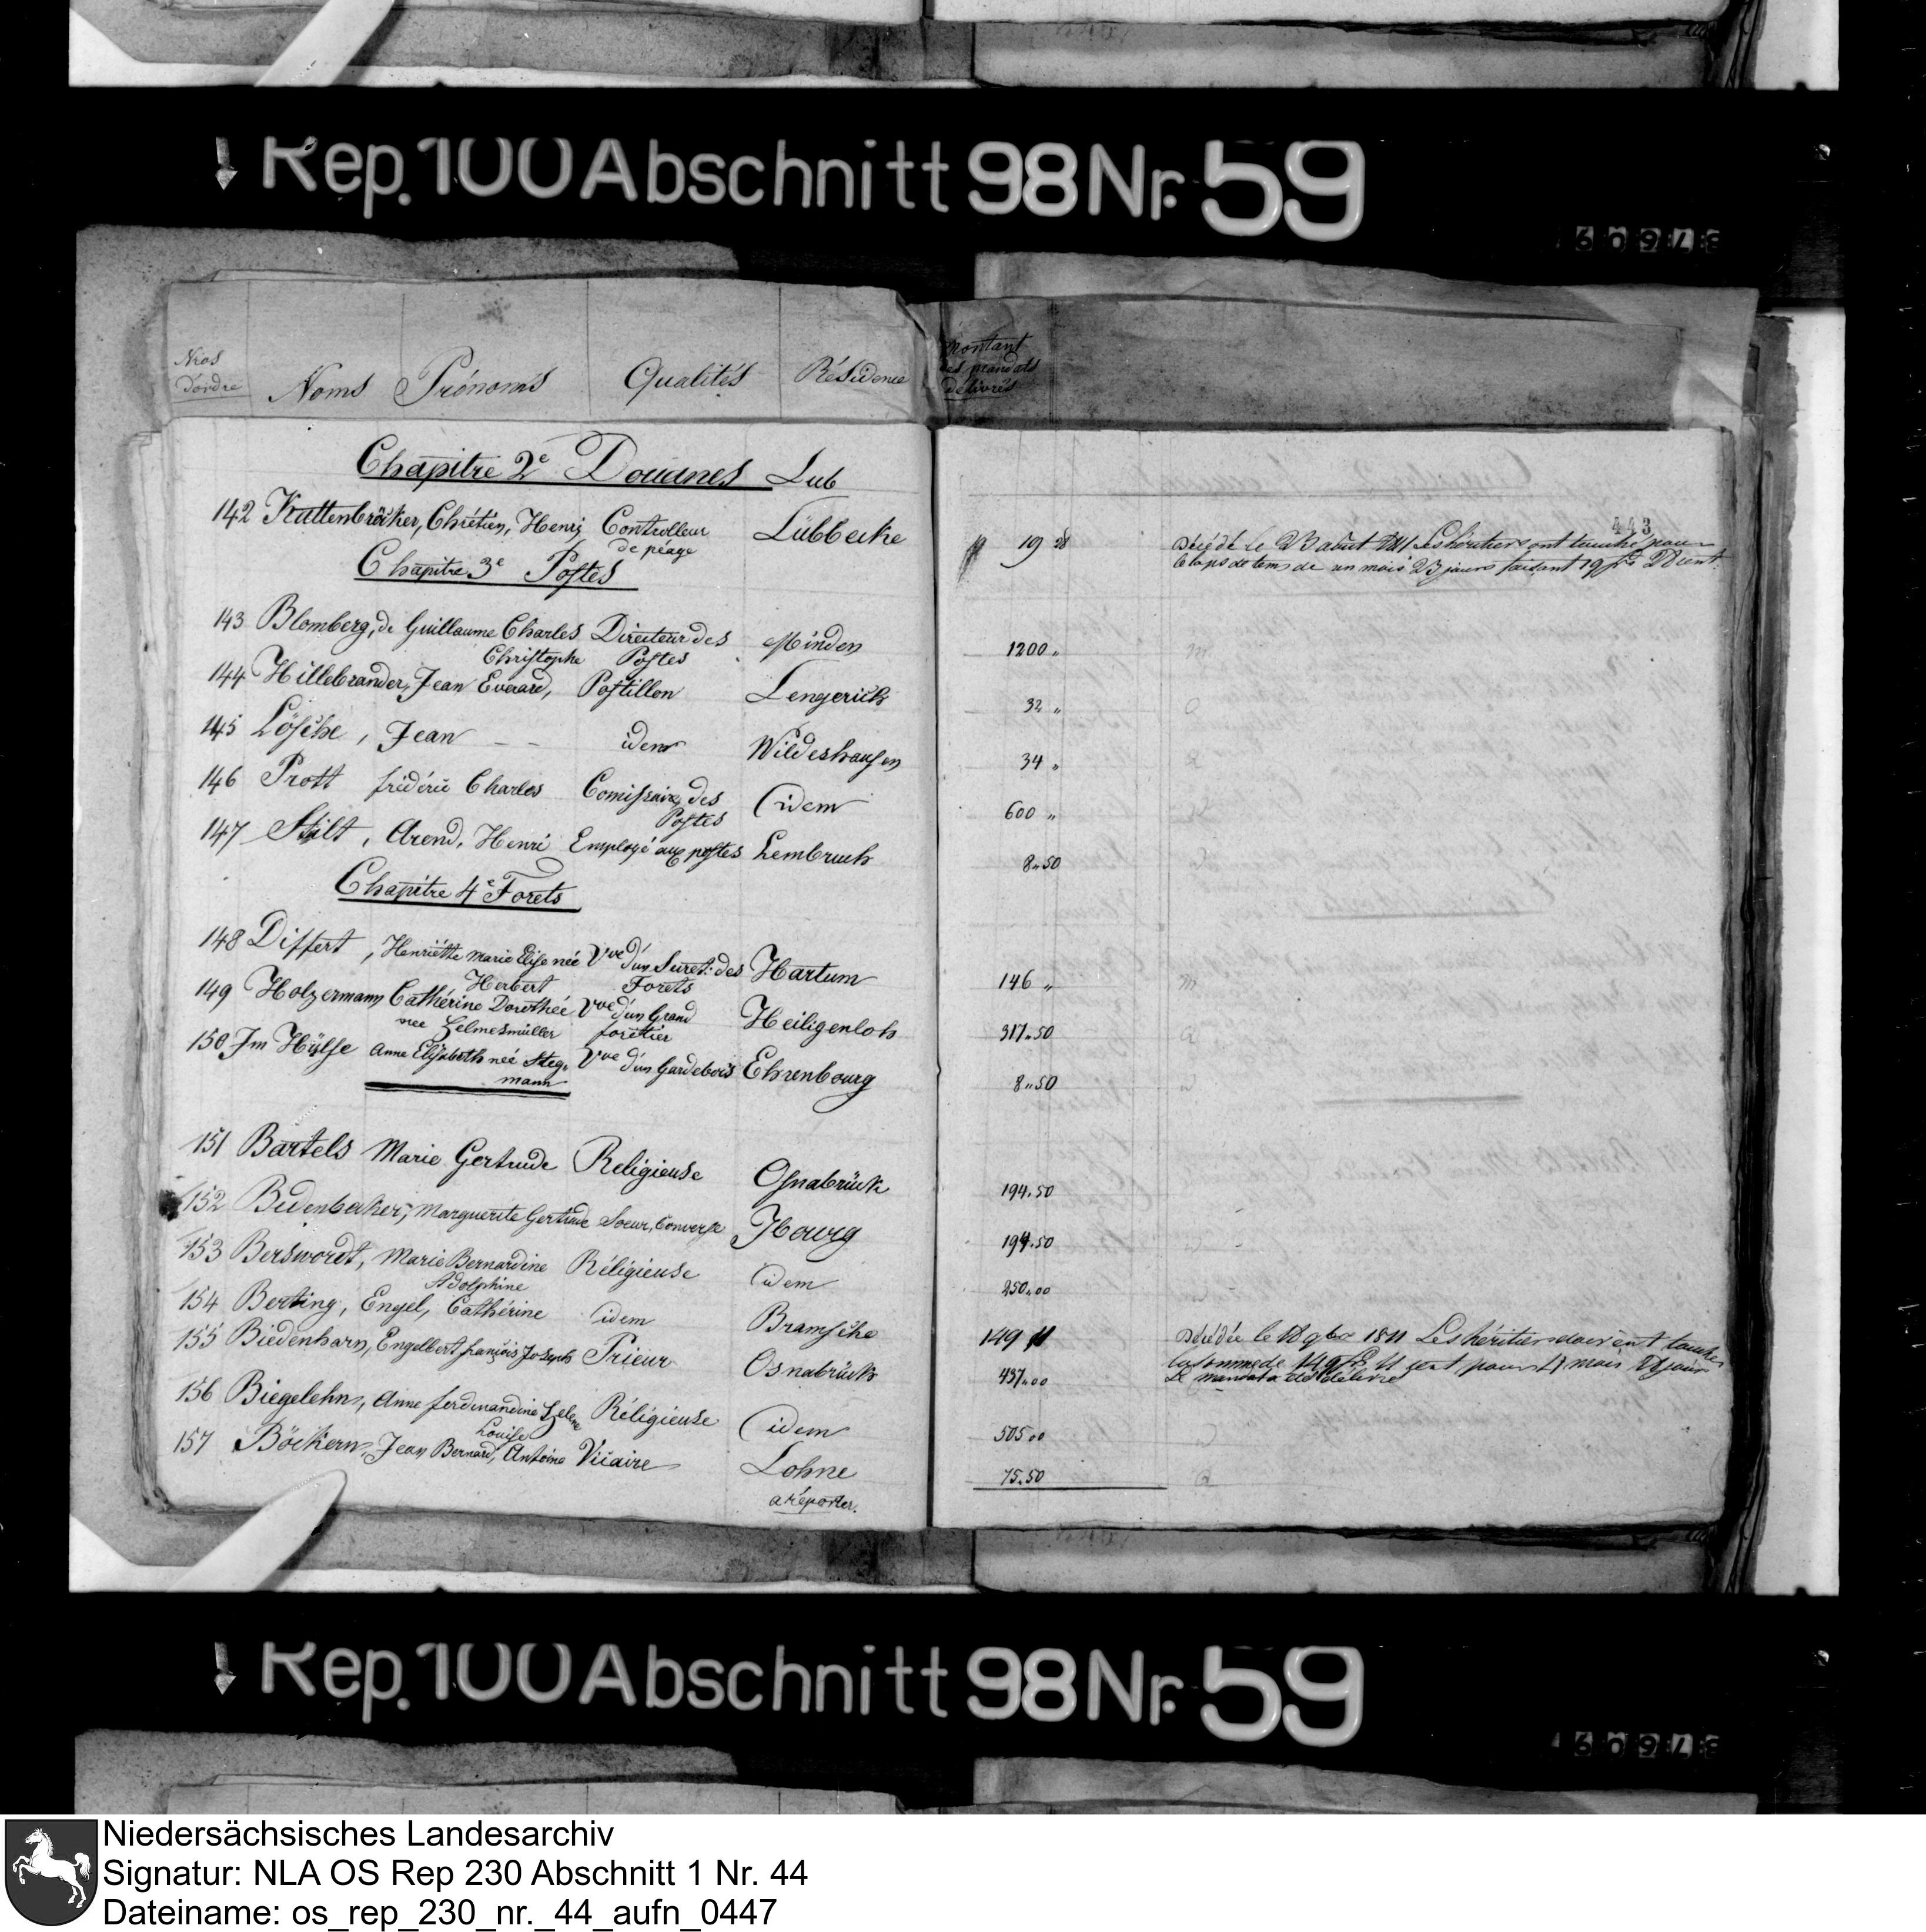 Rep. 100 Abschnitt 98 Nr. 59
Nros d'ordre Noms Prénoms Qualités Résidence Montant des mandats délivrés
Chapitre 2e Douanes Lub
443
142 Kuttenbröcker, Chrétien, Henri Controlleur de péage Lübbecke 19 28 Décédé le 23 août 1811 Les héritiers ont touché pour
le laps de tems de un mois 23 jours faisant 19 frs 28 cent.
Chapitre 3e Postes
143 Blomberg, de Guillaume Charles Christophe Directeur des Postes Minden 1200 "
144 Hillebrander, Jean Everard, Postillon Lengerich 32 "
145 Lösche, Jean idem Wildeshausen 34 "
146 Prott frédéric Charles Comissaire des Postes idem 600 "
147 Stilt, Arend, Henri Employé aux postes Lembruch 8.50
Chapitre 4e Forets
148 Differt, Henriétte Marie Elise née Herbert Vve d'un Suret. des Forets Hartum 146 "
149 Holzermann Cathérine Dorothée née Helmesmüller Vve d'un Grand forêtier Heiligenloh 317.50
150 Im Hülse Anne Elisabeth née Stegmann Vve d'un Gardebois Ehrenbourg 8.50
151 Bartels Marie Gertrude Religieuse Osnabrück 194.50
152 Bidenbecker, Marguerite Gertrude Soeur, Converse Ibourg 194.50
153 Berswordt, Marie Bernardine Adolphine Réligieuse idem 250.00
154 Berting, Engel, Cathérine idem Bramsche 149 11 Décédée le 18 9bre 1811 Les héritiers doivent toucher
la somme de 149 frs 11 cent pour 4 mois jours
Le mandat a été délivré
155 Biedenharn, Engelbert françois Joseph Prieur Osnabrück 437.00
156 Biegelehn, Anne ferdinandine Helene Louise Réligieuse idem 505.00
157 Böckern, Jean Bernard, Antoine Vicaire Lohne 75.50
a réporter.
Rep. 100 Abschnitt 98 Nr. 59
Niedersächsisches Landesarchiv
Signatur: NLA OS Rep 230 Abschnitt 1 Nr. 44
Dateiname: os_rep_230_nr._44_aufn_0447